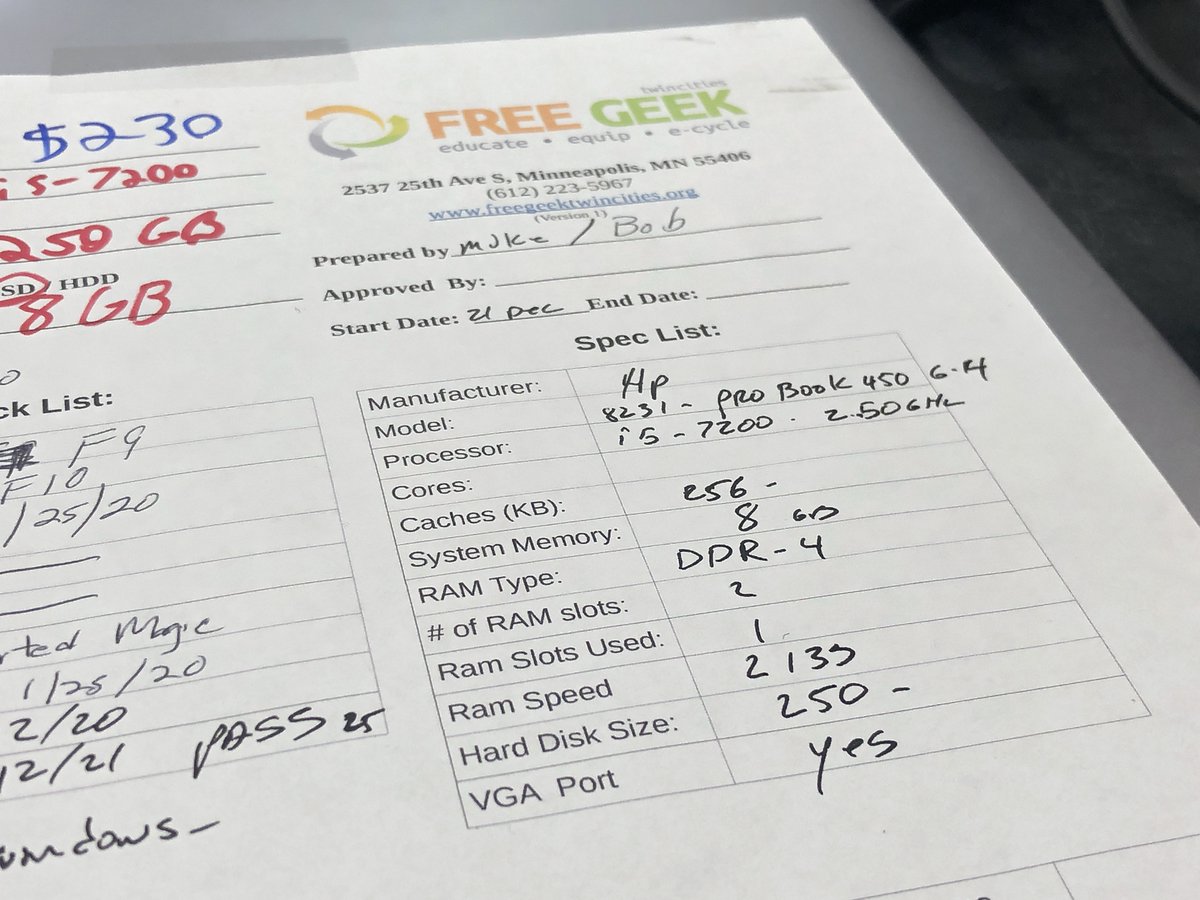 $230
i5-7200
250 GB
SD HDD
8 GB
twincities
FREE GEEK
educate • equip • e-cycle
2537 25th Ave S, Minneapolis, MN 55406
(612) 223-5967
www.freegeektwincities.org
(Version 1)
Prepared by Mike / Bob
Approved By:
Start Date: 21 Dec End Date:
ck List:
F9
F10
/25/20
rted Magic
1/25/20
2/20
12/21 PASS 25
Spec List:
Manufacturer: Hp
Model: 8231 - PRO BOOK 450 G-4
Processor: i5-7200 · 2.50 GHz
Cores:
Caches (KB): 256 -
System Memory: 8 GB
RAM Type: DDR-4
# of RAM slots: 2
Ram Slots Used: 1
Ram Speed 2133
Hard Disk Size: 250 -
VGA Port yes